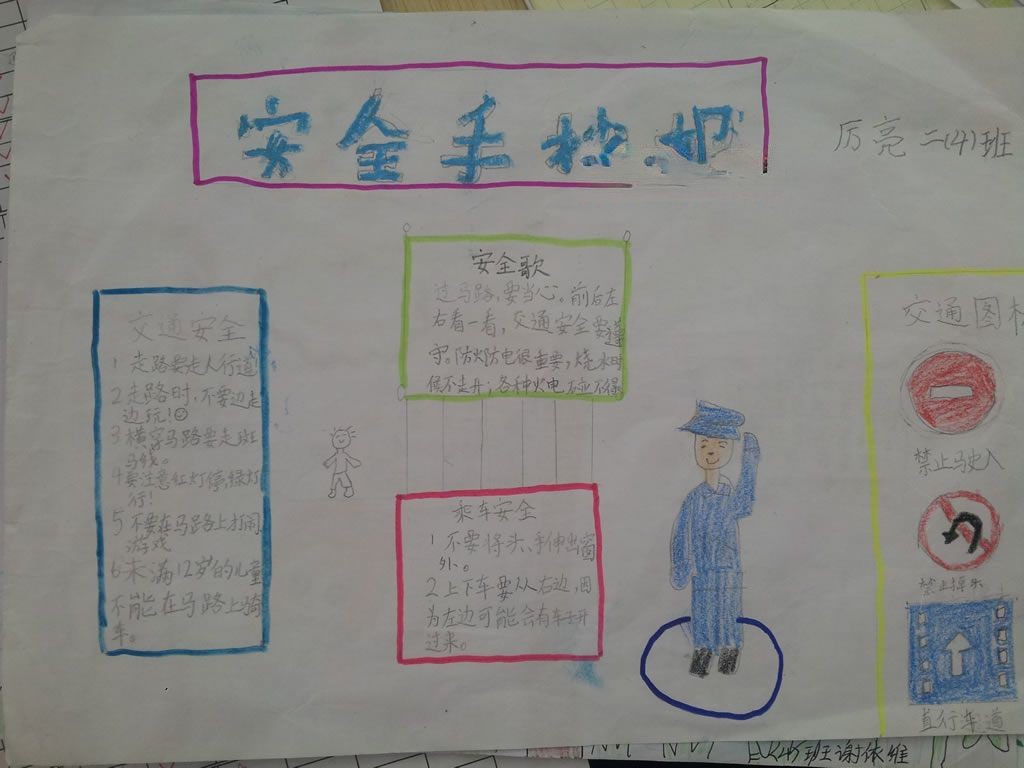 安全手抄
厉亮 二(4)班
交通安全
1 走路要走人行道
2 走路时,不要边走
边玩!
3 横穿马路要走斑
马线。
4 要注意红灯停,绿灯
行!
5 不要在马路上打闹
游戏
6 未满12岁的儿童
不能在马路上骑
车。
安全歌
过马路,要当心。前后左
右看一看,交通安全要遵
守,防火防电很重要,烧水时
候不走开;各种火电碰不得
乘车安全
1 不要将头、手伸出窗
外。
2 上下车要从右边,因
为左边可能会有车子开
过来。
交通图标
禁止驶入
禁止掉头
直行车道
班谢依维